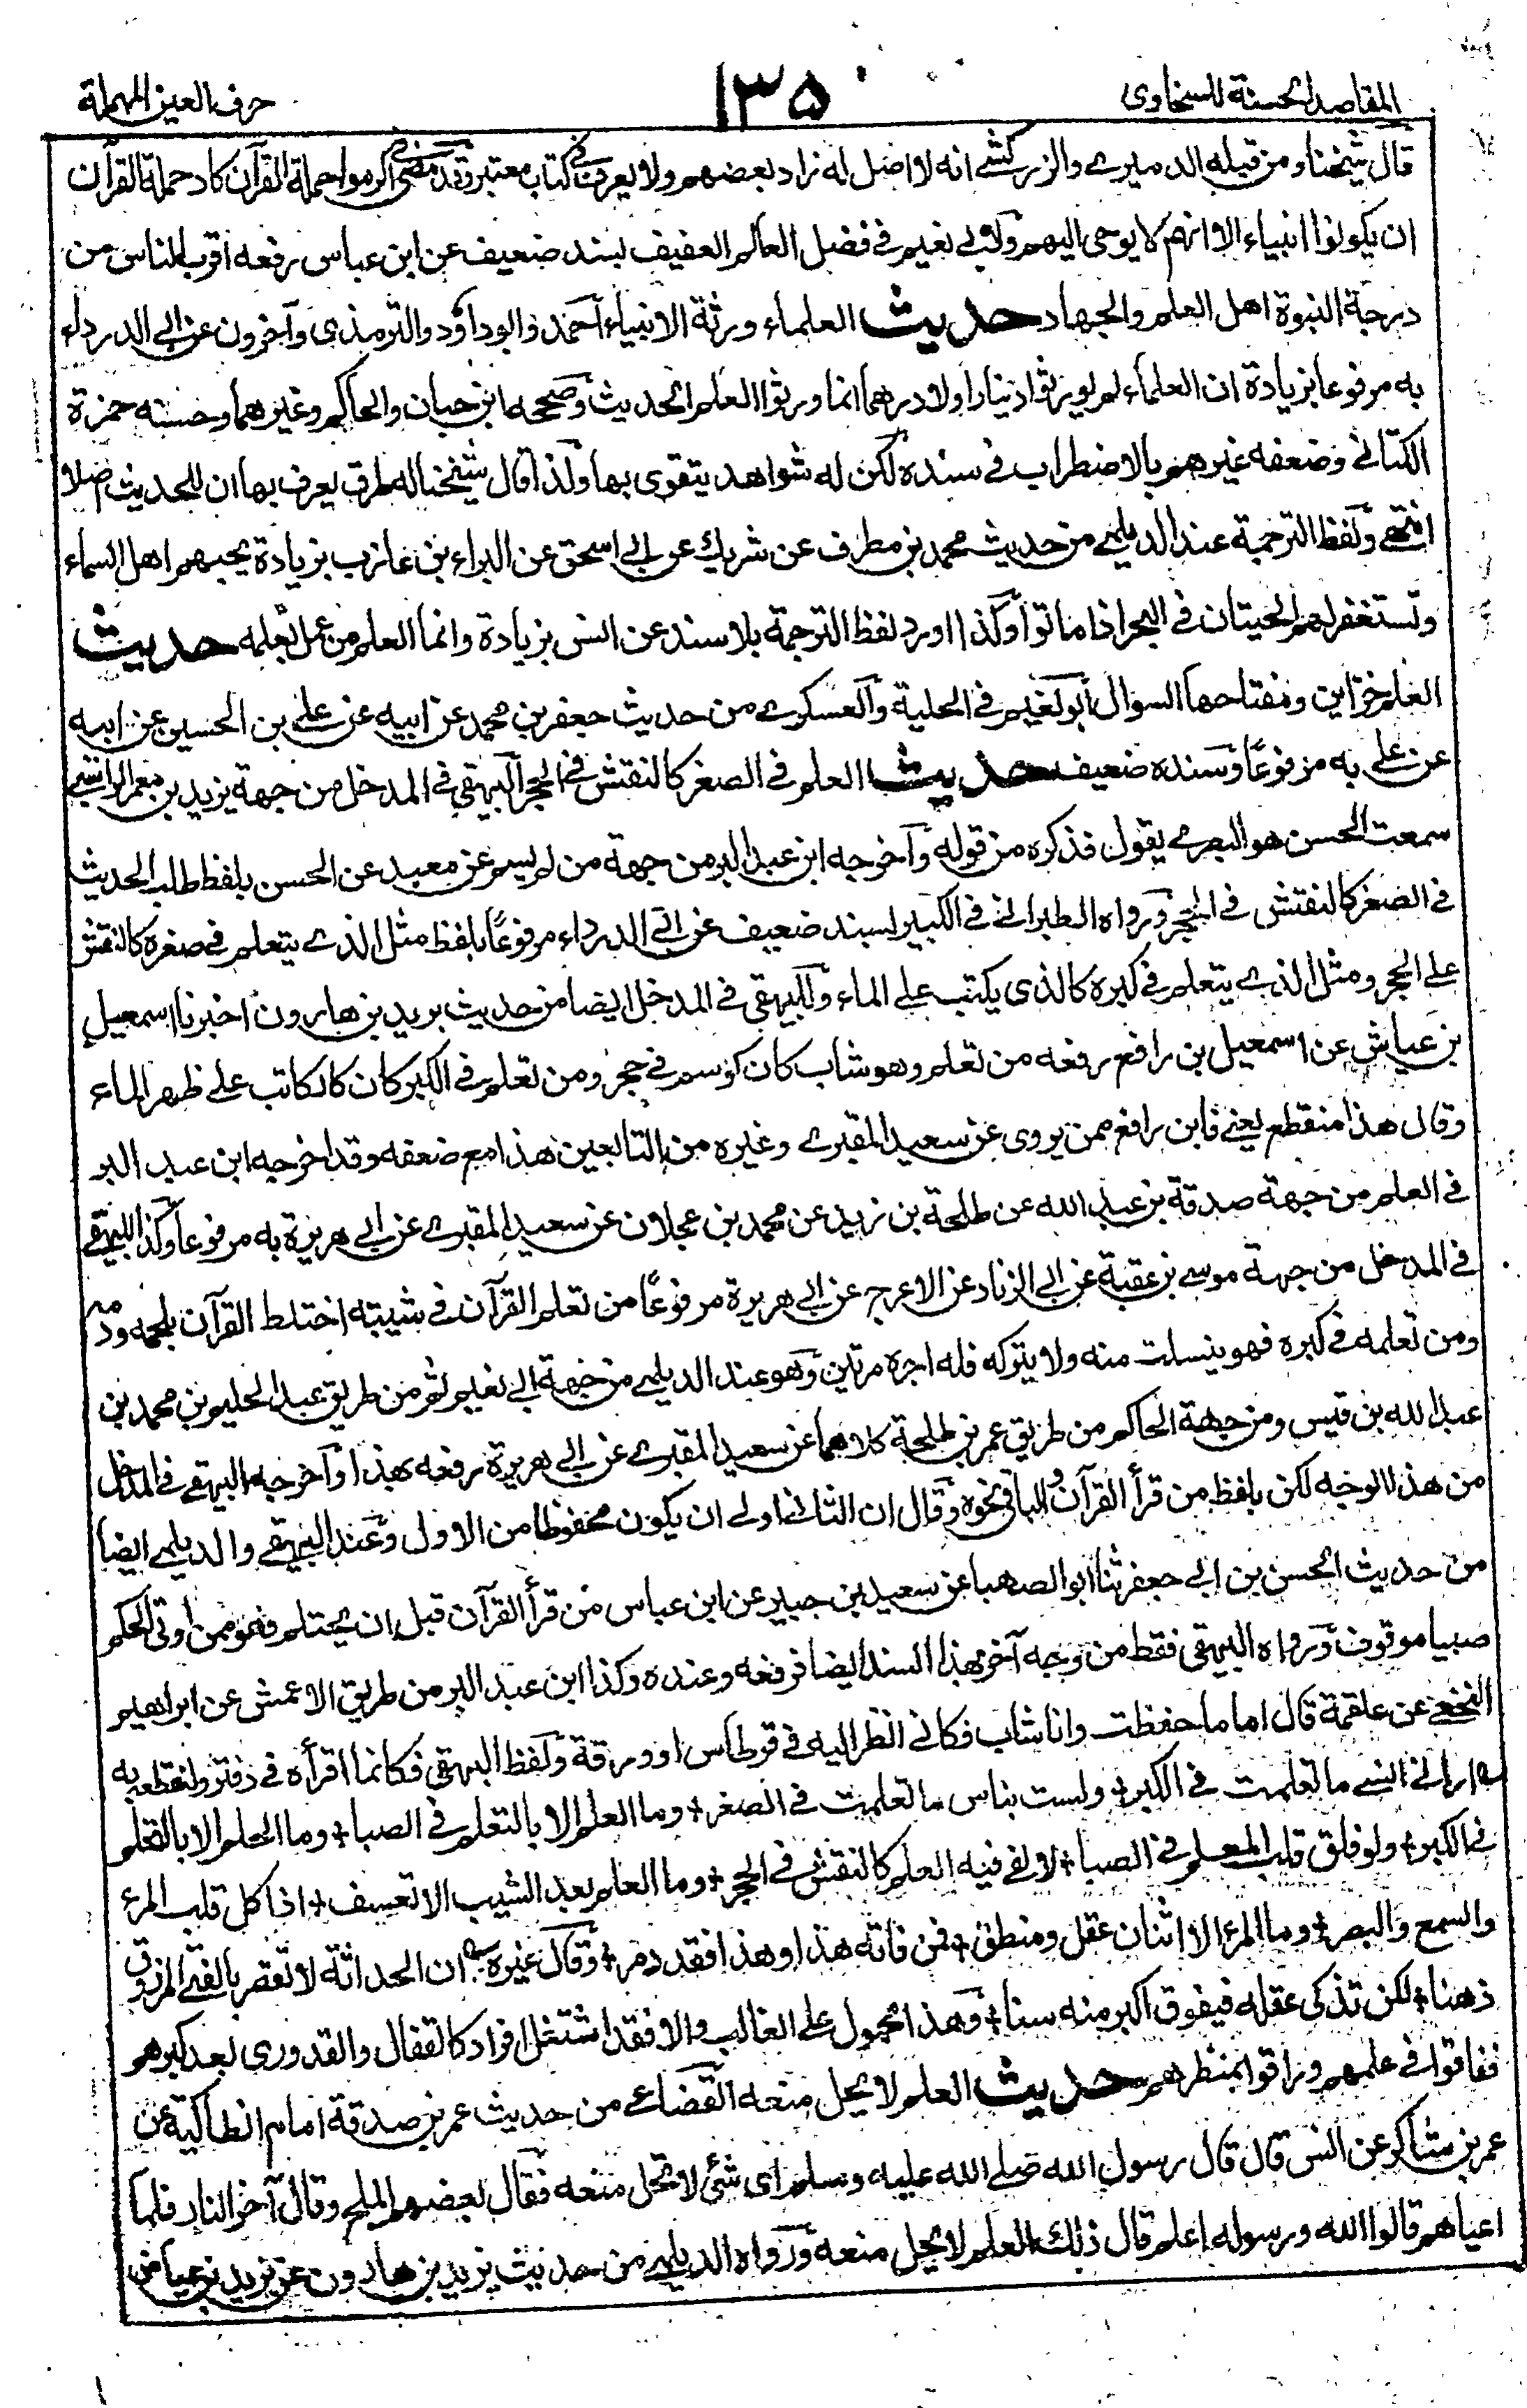 المقاصد الحسنة للسخاوی
١٣٥
حرف العين المهملة
قال شيخنا ومن قبله الدميرے والزركشے انه لا اصل له زاد بعضهم ولا يعرف فی كتاب معتبر وقد مضی اكرموا حملة القرآن كاد حملة القرآن
ان يكونوا انبياء الا انهم لا يوحى اليهم ولابی نعيم فی فضل العالم العفيف بسند ضعيف عن ابن عباس رفعه اقرب الناس من
درجة النبوة اهل العلم والجهاد حديث العلماء ورثة الانبياء احمد وابو داؤد والترمذی وآخرون عن ابی الدرداء
به مرفوعا بزيادة ان العلماء لم يورثوا دينارا ولا درهما انما ورثوا العلم الحديث وصححه ابن حبان والحاكم وغيرهما وحسنه حمزة
الكنانی وضعفه غيرهم بالاضطراب فی سنده لكن له شواهد يتقوى بها ولذا قال شيخنا له طرق يعرف بها ان للحديث اصلا
انتهی ولفظ الترجمة عند الديلمی من حديث محمد بن مطرف عن شريك عن ابی اسحق عن البراء بن عازب بزيادة يحبهم اهل السماء
وتستغفر لهم الحيتان فی البحر اذا ماتوا وكذا اورد لفظ الترجمة بلا سند عن انس بزيادة وانما العلم من عمل بعلمه حديث
العلم خزاين ومفتاحها السوال ابو نعيم فی الحلية والعسكرے من حديث جعفر بن محمد عن ابيه عن علی بن الحسين عن ابيه
عن علی به مرفوعًا وسنده ضعيف حديث العلم فی الصغر كالنقش فی الحجر البيهقی فی المدخل من جهة يزيد بن معمر الراسبی
سمعت الحسن هو البصرے يقول فذكره من قوله وآخرجه ابن عبد البر من جهة من لم يسم عن معبد عن الحسن بلفظ طلب الحديث
فی الصغر كالنقش فی الحجر ورواه الطبرانی فی الكبير بسند ضعيف عن ابی الدرداء مرفوعًا بلفظ مثل الذے يتعلم فی صغره كالنقش
علی الحجر ومثل الذے يتعلم فی كبره كالذی يكتب علی الماء وللبيهقی فی المدخل ايضا من حديث يزيد بن هارون اخبرنا اسمعيل
بن عياش عن اسمعيل بن رافع رفعه من تعلم وهو شاب كان كوسم فی حجر ومن تعلم فی الكبر كان كالكاتب علی ظهر الماء
وقال هذا منقطع يعنی فابن رافع ممن يروی عن سعيد المقبرے وغيره من التابعين هذا مع ضعفه وقد اخرجه ابن عبد البر
فی العلم من جهة صدقة بن عبد الله عن طلحة بن زيد عن محمد بن عجلان عن سعيد المقبرے عن ابی هريرة به مرفوعا وكذا البيهقی
فی المدخل من جهة موسی بن عقبة عن ابی الزناد عن الاعرج عن ابی هريرة مرفوعًا من تعلم القرآن فی شبيبته اختلط القرآن بلحمه ودمه
ومن تعلمه فی كبره فهو ينسلت منه ولا يتركه فله اجره مرتين وهو عند الديلمی من جهة ابی نعيم ثم من طريق عبد الحليم بن محمد بن
عبد الله بن قيس ومن جهة الحاكم من طريق عمر بن طلحة كلاهما عن سعيد المقبرے عن ابی هريرة رفعه بهذا وآخرجه البيهقی فی المدخل
من هذا الوجه لكن بلفظ من قرأ القرآن والباقی نحوه وقال ان الثانی اولی ان يكون محفوظا من الاول وعند البيهقی والديلمی ايضا
من حديث الحسن بن ابی جعفر ثنا ابو الصهبا عن سعيد بن جبير عن ابن عباس من قرأ القرآن قبل ان يحتلم فهو ممن اوتی الحكم
صبيا موقوف ورواه البيهقی فقط من وجه آخر بهذا السند ايضا فرفعه وعنده وكذا ابن عبد البر من طريق الاعمش عن ابراهيم
النخعی عن علقمة قال اما ما حفظت وانا شاب فكانی انظر اليه فی قرطاس او ورقة ولفظ البيهقی فكانما اقرأه فی دفتر ولنفطويه
ارانی انسی ما تعلمت فی الكبر ولست بناس ما تعلمت فی الصغر وما العلم الا بالتعلم فی الصبا وما الحلم الا بالتحلم
فی الكبر ولو فلق قلب المعلم فی الصبا لالفی فيه العلم كالنقش فی الحجر وما العلم بعد الشيب الا تعسف اذا كل قلب المرء
والسمع والبصر وما المرء الا اثنان عقل ومنطق فمن فاته هذا وهذا فقد دمر وقال غيره ان الحداثة لا تقصر بالفتی المرزوق
ذهنا لكن تذكی عقله فيفوق اكبر منه سنا وهذا محمول علی الغالب والا فقد اشتغل افراد كالقفال والقدوری بعد كبرهم
ففاقوا فی علمهم وراقوا بمنظرهم حديث العلم لا يحل منعه القضاعی من حديث عمر بن صدقة امام انطاكية عن
عمر بن شاكر عن انس قال قال رسول الله صلی الله عليه وسلم ای شئ لا يحل منعه فقال بعضهم الملح وقال آخر النار فلما
اعياهم قالوا الله ورسوله اعلم قال ذلك العلم لا يحل منعه ورواه الديلمی من حديث يزيد بن هارون عن يزيد بن عياض